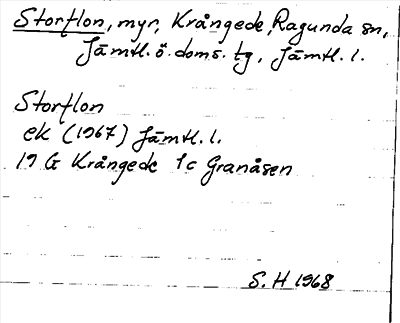 Storflon, myr, Krångede, Ragunda sn,
Jämtl. ö. doms. tg, Jämtl. l.
Storflon
ek (1967) Jämtl. l.
19 G Krångede 1c Granåsen
S. H 1968